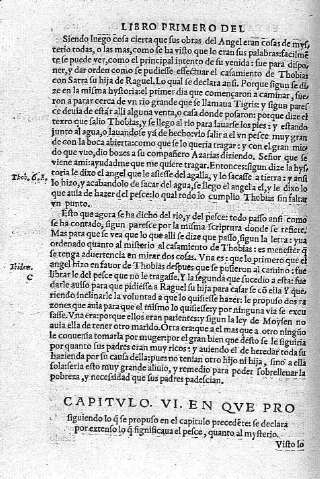 LIBRO PRIMERO DEL
Siendo luego cosa cierta que sus obras del Angel eran cosas de mys
terio todas, o las mas, como se ha visto que lo eran sus palabras: facilmẽ
te se puede ver, como el principal intento de su venida: fue para dispo
ner, y dar orden como se pudiesse effectuar el casamiento de Thobias
con Sarra su hija de Raguel. Lo qual se declara ansi. Porque segun se di
ze en la misma hystoria: el primer dia que començaron a caminar, fue
ron a parar cerca de vn rio grande que se llamaua Tigris: y segun pares
ce deuia de estar alli alguna venta, o casa donde posaron: porque dize el
texto que salio Thobias, y se llego al rio para lauarse los pies: y estando
junto al agua, o lauandose ya de hecho: vio salir a el vn pesce muy gran
de con la boca abierta: como que se lo queria tragar: y con el gran mie
do que vuo, dio bozes a su compañero Azarias diziendo. Señor que se
viene ami: ayudadme que me quiere tragar. Entonces: sigun dize la hys
Thob. 6. 8.
toria le dixo el angel que le asiesse del agalla, y le sacasse a tierra: y ansi
lo hizo, y acabandolo de sacar del agua, se llego el angel a el, y le dixo lo
que auia de hazer del pesce: lo qual todo lo cumplio Thobias sin faltar
vn punto.
Esto que agora se ha dicho del rio, y del pesce: todo passo ansi como
se ha contado, sigun paresce por la misma scriptura donde se refiere.
Mas para que se vea que lo que alli se dize que passo, sigun la letra: yua
ordenado quanto al misterio al casamiento de Thobias: es menester q̃
se tenga aduertencia en mirar dos cosas. Vna es: que lo primero que el
Ibidem.
angel hizo en fauor de Thobias despues que se pusieron al camino: fue
C
librarle del pesce que no le tragasse. Y la segunda que sucedio a esta: fue
darle auiso para que pidiesse a Raguel su hija para casar se cõ ella Y que
riendo inclinarle la voluntad a que lo quisiesse hazer: le propuso dos ra
zones que auia para que el mismo lo quisiesse, y por ninguna via se excu
sasse. Vna era: porque ellos eran parientes: y sigun la ley de Moysen no
auia ella de tener otro marido. Otra era: que a el mas que a otro ninguno
le conuenia tomarla por muger: por el gran bien que desto se le siguiria
por quanto sus padres eran muy ricos: y auiendo el de heredar toda su
hazienda por su causa della: pues no tenian otro hijo ni hija, sino a ella
sola: seria esto muy grande aliuio, y remedio para poder sobrellenar la
pobreza, y necessidad que sus padres padescian.
CAPITVLO. VI. EN QVE PRO
siguiendo lo q̃ se propuso en el capitulo precedẽte: se declara
por extenso lo q̃ significaua el pesce, quanto al mysterio.
Visto lo